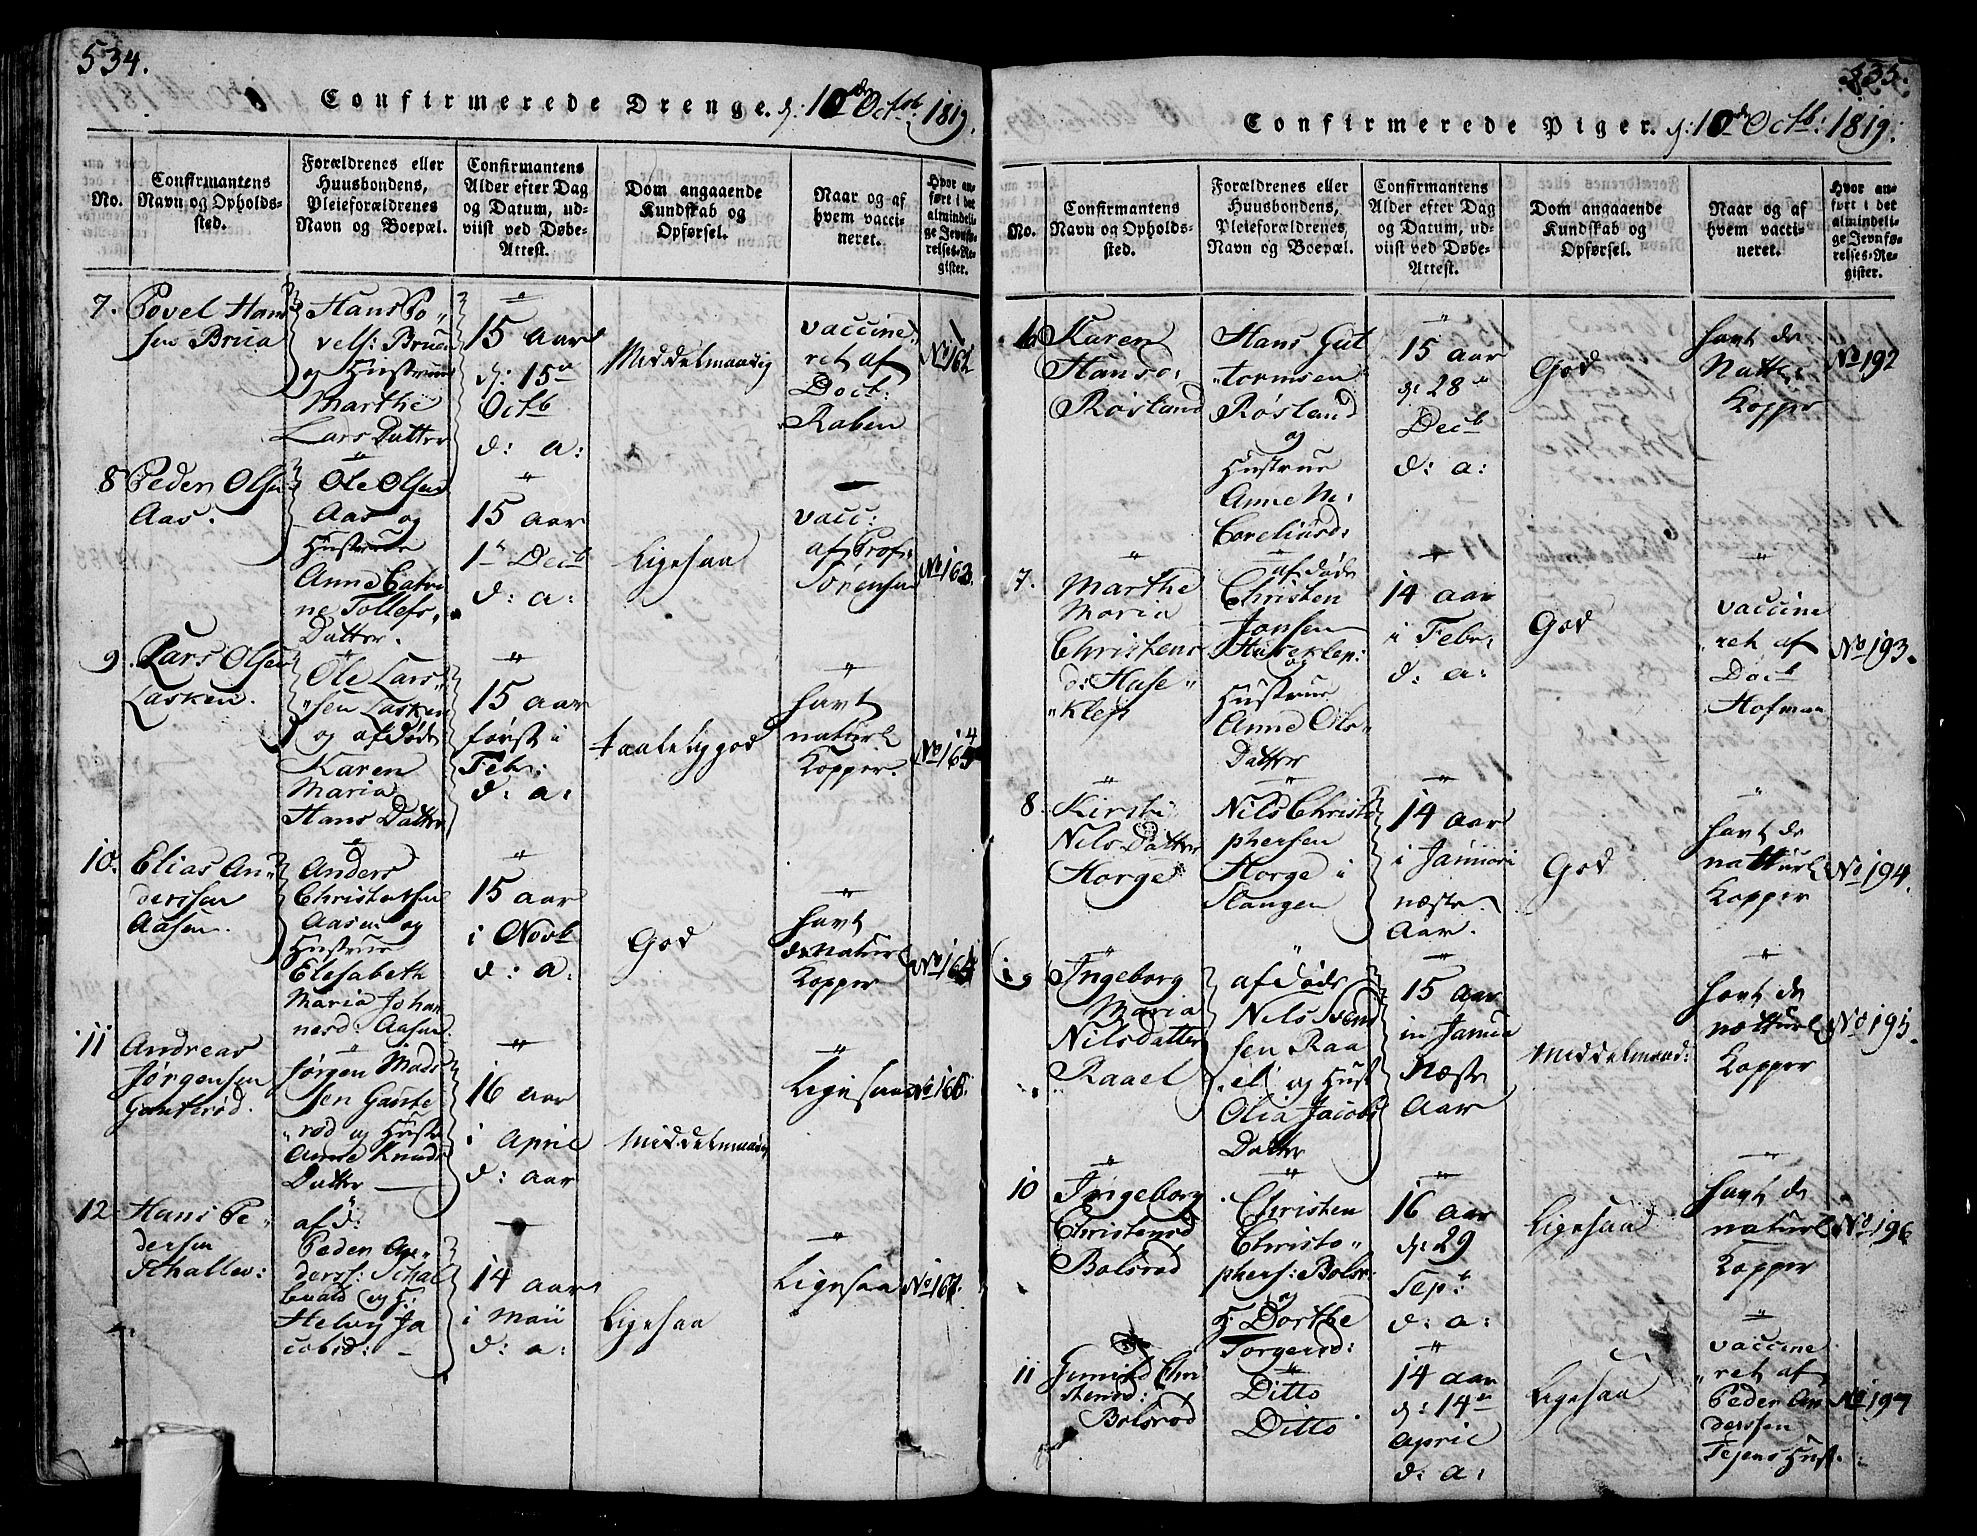 534.
Confirmerede Drenge. d: 10de Octob: 1819.
No.
Confirmantens
Navn og Opholds-
sted.
Forældrenes eller
Huusbondens,
Pleieforældrenes
Navn og Boepæl.
Confirmantens
Alder efter Dag
og Datum, ud-
viist ved Døbe-
Attest.
Dom angaaende
Kundskab og
Opførsel.
Naar og af
hvem vacci-
neret.
Hvor an-
ført i det
almindeli-
ge Jevnfø-
relses-Re-
gister.
7.
Povel Han
sen Brua
Hans Po„
vels: Bruen
og Hustrue
Marthe
Lars Datter
15 aar
d: 15de
Octb
d: a:
Middelmaadig
vaccine„
ret af
Doct:
Raben
No 162
8
Peder Olsen
Aas.
Ole Olsen
Aas og
Hustrue
Anne Catri
ne Tollefs„
Datter.
15 aar
1te Decb
d: a:
Ligesaa
vacc:
af Prof:
Sørensen
No 163.
9.
Lars Olsen
Lasken.
Ole Lars„
„sen Lasken
og afdøde
Karen
Maria
Hans Datter
15 aar
først i
Feb:
d: a:
taalelig god
havt
naturl
Kopper.
No 164
10.
Elias An„
derssen
Aasen.
Anders
Christensen
Aasen og
Hustrue
Elesabeth
Maria Johan
nesd: Aasen.
15 aar
i Novb
d: a:
God
havt
de naturl
Kopper
No 165
11
Andreas
Jørgensen
Gauterød.
Jørgen Mads
sen Gaute„
„rød og Hustr
Anne Knuds
Datter
16 aar
i April
d: aar
Middelmaadig
Ligesaa
No 166.
12
Hans Pe„
dersen
Schallev:
afd:
Peder An„
derss: Schal
levald og H:
Helvig Ja
cobsd:
14 aar
i Maii
d: a:
Ligesaa
Ligesaa
No 167.
535.
Confirmerede Piger. d: 10de Octb: 1819.
No.
Confirmantens
Navn og Opholds-
sted.
Forældrenes eller
Huusbondens,
Pleieforældrenes,
Navn og Boepæl.
Confirmantens
Alder efter Dag
og Datum, ud-
viist ved Døbe-
Attest.
Dom angaaende
Kundskab og
Opførsel.
Naar og af
hvem vacci-
neret.
Hvor an-
ført i det
almindeli-
ge Jevnfø-
relses-Re-
gister.
6
Karen
Hansd:
Røsland
Hans Gut
„tormsen
Røsland
og
Hustrue
Anne M:
Coreliusd:
15 aar
d: 28de
Decb
d: a:
God
havt de
Natter
Kopper
No 192
7.
Marthe
Maria
Christens
d: Hase„
„kleft
afdøde
Christen
Jonsen
Haseklep:
og
Hustrue
Anne Ols„
Datter
14 aar
i Febr,
d: a:
God
vaccine
„ret af
Doct
Hofman
No 193.
8.
Kirsti
Nils Datter
Horge
Nils Christo
phersen
Horge i
Slangen
14 aar
i Januari
næste
Aar.
God
havt de
natturl
Kopper
No 194.
9
Ingeborg
Maria
Nilsdatter
Raael
afdøde
Nils Svend
sen Raa
„el og Hust
Olia Jacobs
Datter
15 aar
in Janua
Næste
Aar
Middelmaad:
havt de
nætturl
Kopper
No 195.
10
Ingeborg
Christensd
Bolsrød
Christen
Christo„
phers: Bolsr
og
H Dorthe
Torgersd:
16 aar
d: 29
Sepb
d: a:
Ligesaa
havt de
naturl
Kopper
No 196
11
Gunild Chri
stensd:
Bolsrød
Ditto
Ditto
14 aar
d: 14de
April
d: a:
Ligesaa
vaccine
„ret af
Peder An
derssen
Tejens Hust:
No 197